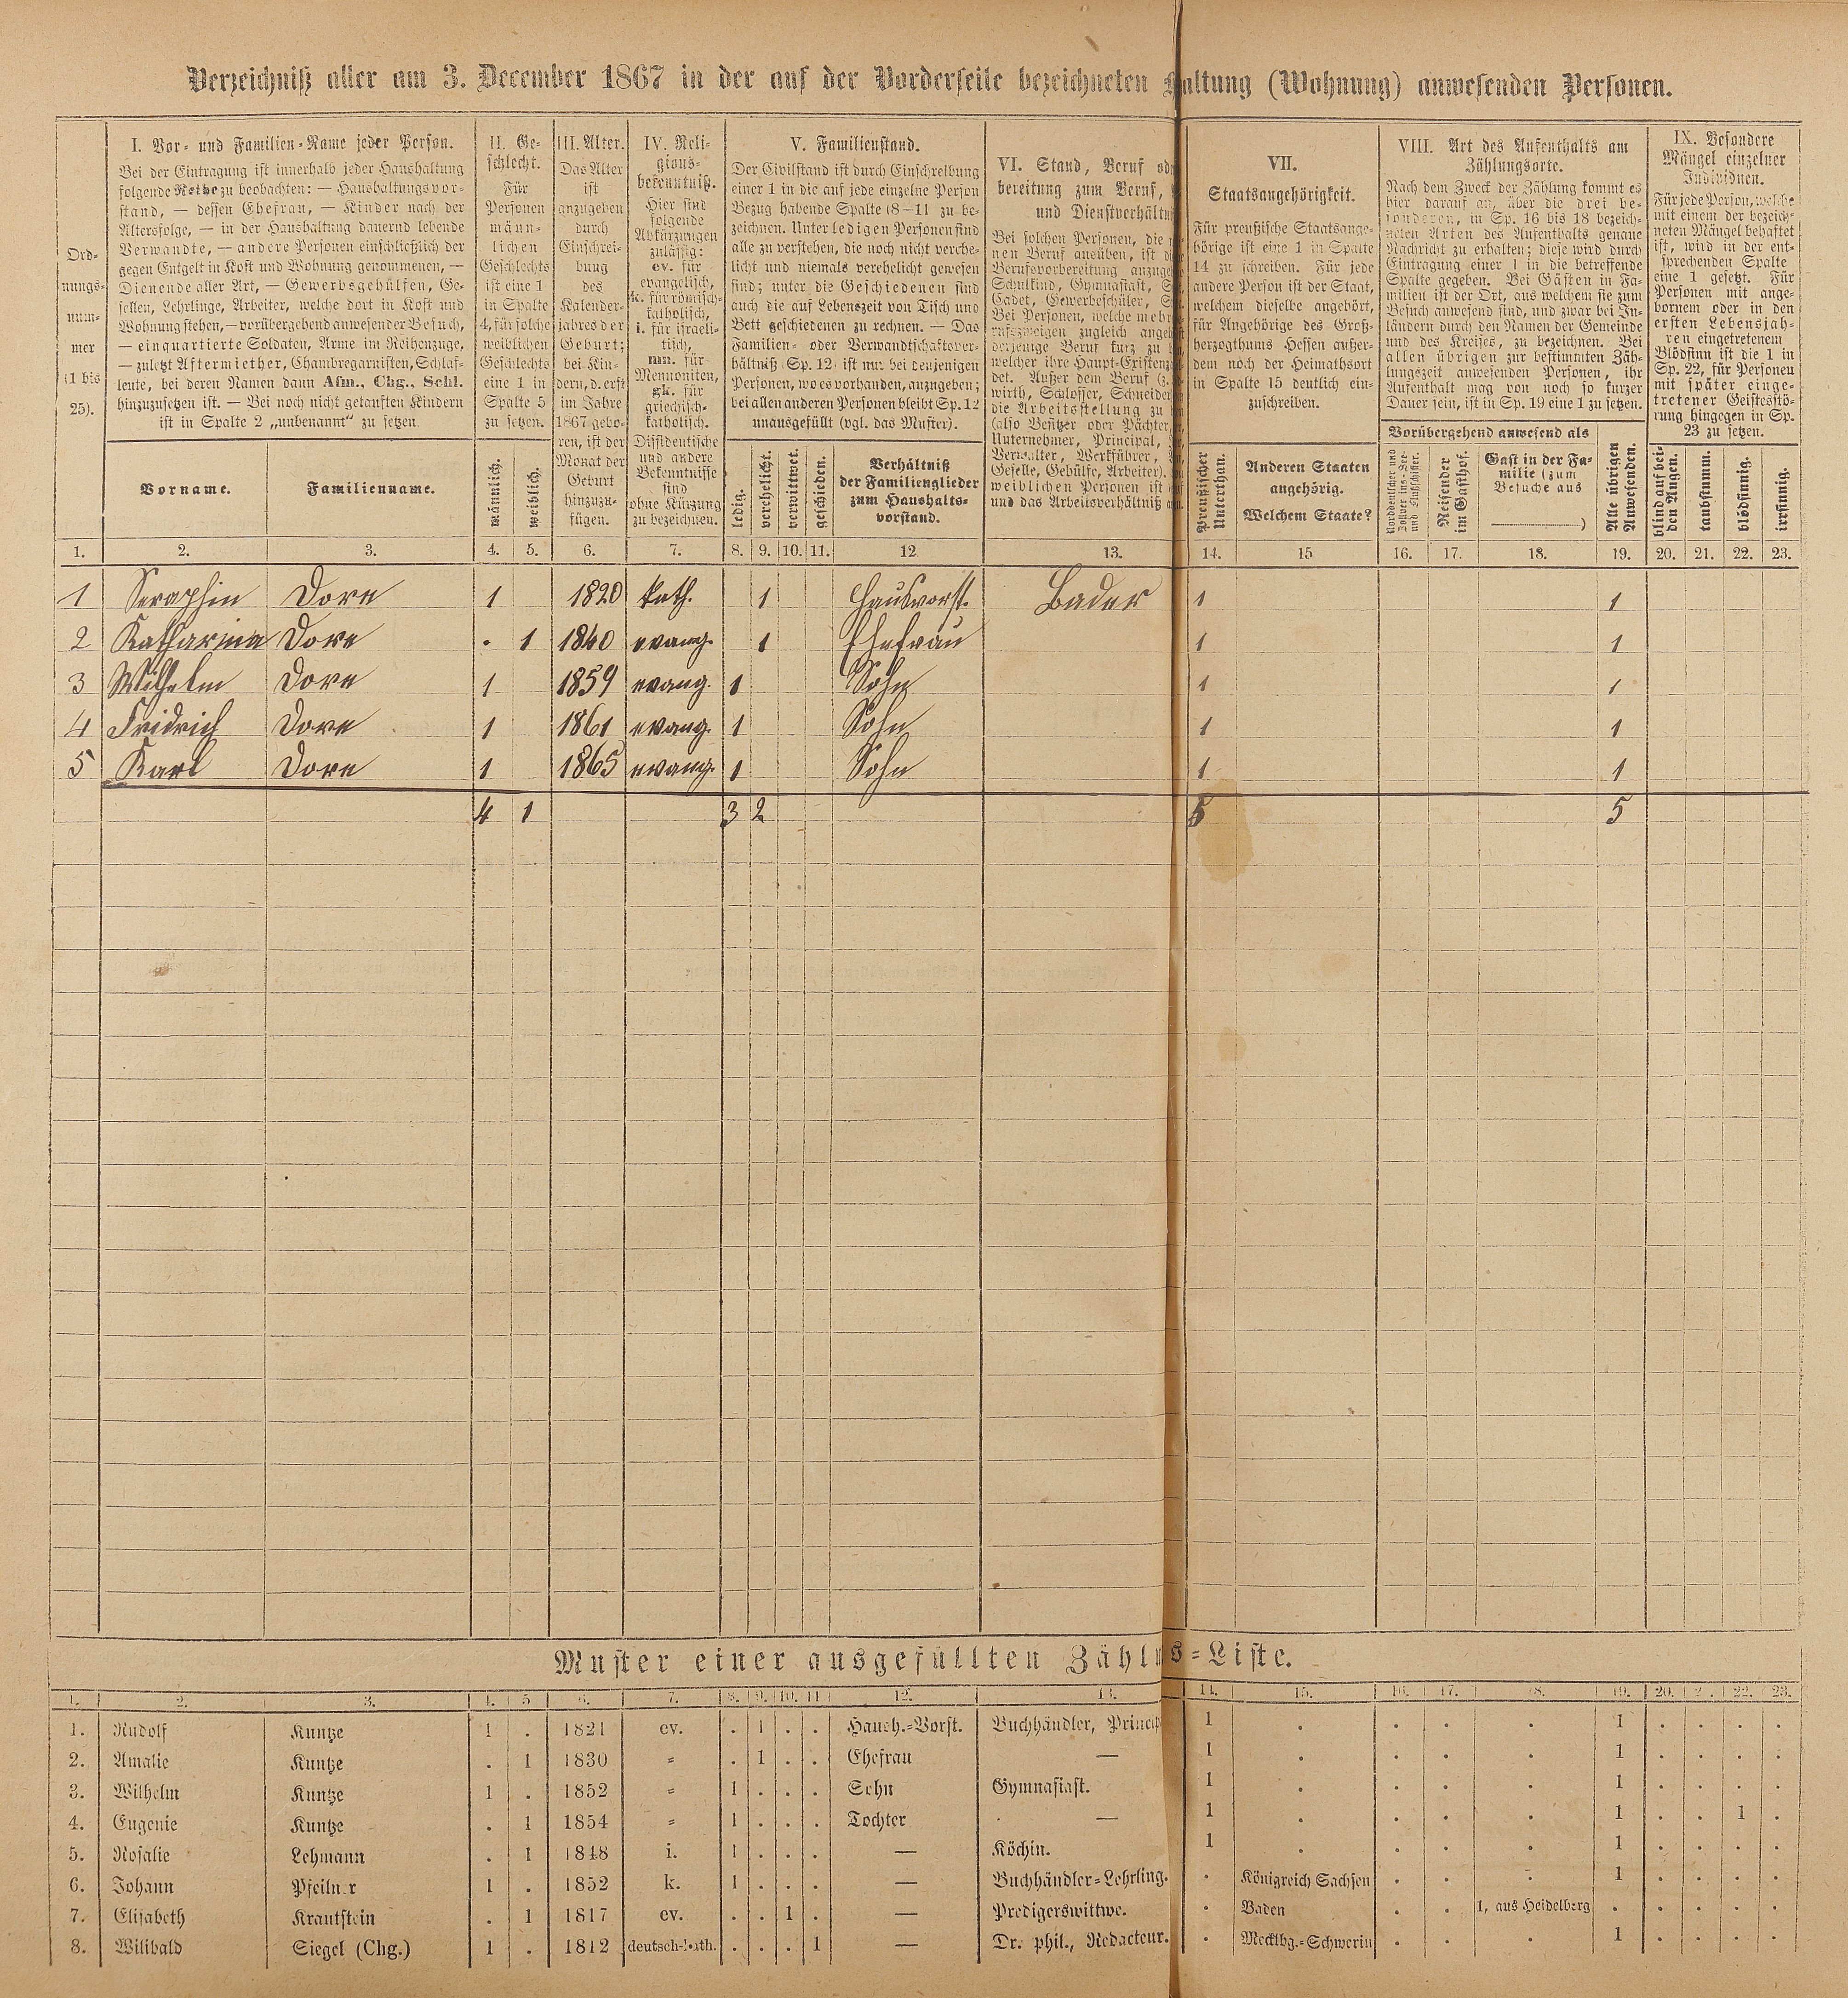 Verzeichniß aller am 3. December 1867 in der auf der Vorderseite bezeichneten Haltung (Wohnung) anwesenden Personen.
Ord-
nungs-
num-
mer
(1 bis
25).
I. Vor- und Familien-Name jeder Person.
Bei der Eintragung ist innerhalb jeder Haushaltung
folgende Reihe zu beobachten: — Haushaltungsvor-
stand, — dessen Ehefrau, — Kinder nach der
Altersfolge, — in der Haushaltung dauernd lebende
Verwandte, — andere Personen einschließlich der
gegen Entgelt in Kost und Wohnung genommenen, —
Dienende aller Art, — Gewerbsgehülfen, Ge-
sellen, Lehrlinge, Arbeiter, welche dort in Kost und
Wohnung stehen, — vorübergehend anwesender Besuch,
— einquartierte Soldaten, Arme im Reihenzuge,
— zuletzt Aftermiether, Chambregarnisten, Schlaf-
leute, bei deren Namen dann Afm., Chg., Schl.
hinzuzusetzen ist. — Bei noch nicht getauften Kindern
ist in Spalte 2 „unbenannt“ zu setzen.
Vorname.
Familienname.
II. Ge-
schlecht.
Für
Personen
männ-
lichen
Geschlechts
ist eine 1
in Spalte
4, für solche
weiblichen
Geschlechts
eine 1 in
Spalte 5
zu setzen.
männlich.
weiblich.
III. Alter.
Das Alter
ist
anzugeben
durch
Einschrei-
bung
des
Kalender-
jahres der
Geburt;
bei Kin-
dern, d. erst
im Jahre
1867 gebo-
ren, ist der
Monat der
Geburt
hinzuzu-
fügen.
IV. Reli-
gions-
bekenntniß.
Hier sind
folgende
Abkürzungen
zulässig:
ev. für
evangelisch,
k. für römisch-
katholisch,
i. für israeli-
tisch,
mn. für
Mennoniten,
gk. für
griechisch-
katholisch.
Dissidentische
und andere
Bekenntnisse
sind
ohne Kürzung
zu bezeichnen.
V. Familienstand.
Der Civilstand ist durch Einschreibung
einer 1 in die auf jede einzelne Person
Bezug habende Spalte (8–11) zu be-
zeichnen. Unter ledigen Personen sind
alle zu verstehen, die noch nicht verehe-
licht und niemals verehelicht gewesen
sind; unter die Geschiedenen sind
auch die auf Lebenszeit von Tisch und
Bett geschiedenen zu rechnen. — Das
Familien- oder Verwandtschaftsver-
hältniß (Sp. 12) ist nur bei denjenigen
Personen, wo es vorhanden, anzugeben;
bei allen anderen Personen bleibt Sp. 12
unausgefüllt (vgl. das Muster).
ledig.
verehelicht.
verwittwet.
geschieden.
Verhältniß
der Familienglieder
zum Haushalts-
vorstand.
VI. Stand, Beruf
bereitung zum Beruf,
und
Bei solchen Personen, die
nen Beruf ausüben, ist
Berufsvorbereitung
Schulkind, Gymnasiast,
Cadet, Gewerbeschüler,
Bei Personen, welche
zugleich
derjenige Beruf kurz zu
welcher ihre
det. Außer dem Beruf
wirth, Schlosser,
die Arbeitsstellung zu
(also Besitzer oder Pächter,
Unternehmer, Principal,
Verwalter, Werkführer,
Geselle, Gehülfe, Arbeiter).
weiblichen Personen ist
und das Arbeitsverhältniß
VII.
Staatsangehörigkeit.
Für preußische Staatsange-
hörige ist eine 1 in Spalte
14 zu schreiben. Für jede
andere Person ist der Staat,
welchem dieselbe angehört,
für Angehörige des Groß-
herzogthums Hessen außer-
dem noch der Heimathsort
in Spalte 15 deutlich ein-
zuschreiben.
Preußischer
Unterthan.
Anderen Staaten
angehörig.
Welchem Staate?
VIII. Art des Aufenthalts am
Zählungsorte.
Nach dem Zweck der Zählung kommt es
hier darauf an, über die drei be-
sonderen, in Sp. 16 bis 18 bezeich-
neten Arten des Aufenthalts genaue
Nachricht zu erhalten; diese wird durch
Eintragung einer 1 in die betreffende
Spalte gegeben. Bei Gästen in Fa-
milien ist der Ort, aus welchem sie zum
Besuch anwesend sind, und zwar bei In-
ländern durch den Namen der Gemeinde
und des Kreises, zu bezeichnen. Bei
allen übrigen zur bestimmten Zäh-
lungszeit anwesenden Personen, ihr
Aufenthalt mag von noch so kurzer
Dauer sein, ist in Sp. 19 eine 1 zu setzen.
Vorübergehend anwesend als
Norddeutscher und
Zollver.ins-See-
und Flußschiffer.
Reisender
im Gasthof.
Gast in der Fa-
milie (zum
Besuche aus
)
Alle übrigen
Anwesenden.
IX. Besondere
Mängel einzelner
Individuen.
Für jede Person, welche
mit einem der bezeich-
neten Mängel behaftet
ist, wird in der ent-
sprechenden Spalte
eine 1 gesetzt. Für
Personen mit ange-
bornem oder in den
ersten Lebensjah-
ren eingetretenem
Blödsinn ist die 1 in
Sp. 22, für Personen
mit später einge-
tretener Geistesstö-
rung hingegen in Sp.
23 zu setzen.
blind auf bei-
den Augen.
taubstumm.
blödsinnig.
irrsinnig.
1. 2. 3. 4. 5. 6. 7. 8. 9. 10. 11. 12. 13. 14. 15 16. 17. 18. 19. 20. 21. 22. 23.
1 Seraphin Dore 1 1820 kath. 1 Hausvorst. Bader 1 1
2 Katharina Dore . 1 1840 evang. 1 Ehefrau 1 1
3 Wilhelm Dore 1 1859 evang. 1 Sohn 1 1
4 Fridrich Dore 1 1861 evang. 1 Sohn 1 1
5 Karl Dore 1 1865 evang. 1 Sohn 1 1
4 1 3 2 5 5
Muster einer ausgefüllten Zähl s-Liste.
1. 2. 3. 4. 5 6. 7. 8. 9. 10. 11 12. 13. 14. 15. 16. 17. 18. 19. 20. 21. 22. 23.
1. Rudolf Kuntze 1 . 1821 ev. . 1 . . Haush.-Vorst. Buchhändler, Princip 1 . . . . 1 . . . .
2. Amalie Kuntze . 1 1830 = . 1 . . Ehefrau — 1 . . . . 1 . . . .
3. Wilhelm Kuntze 1 . 1852 = 1 . . . Sohn Gymnasiast. 1 . . . . 1 . . . .
4. Eugenie Kuntze . 1 1854 = 1 . . . Tochter — 1 . . . . 1 . . 1 .
5. Rosalie Lehmann . 1 1848 i. 1 . . . — Köchin. 1 . . . . 1 . . . .
6. Johann Pfeilner 1 . 1852 k. 1 . . . — Buchhändler-Lehrling. . Königreich Sachsen . . - 1 . . . .
7. Elisabeth Krautstein . 1 1817 ev. . . 1 . — Predigerswittwe. . Baden . . 1, aus Heidelberg . . . . .
8. Wilibald Siegel (Chg.) 1 . 1812 deutsch-kath. . . . 1 — Dr. phil., Redacteur. . Mecklbg.-Schwerin . . . 1 . . . .